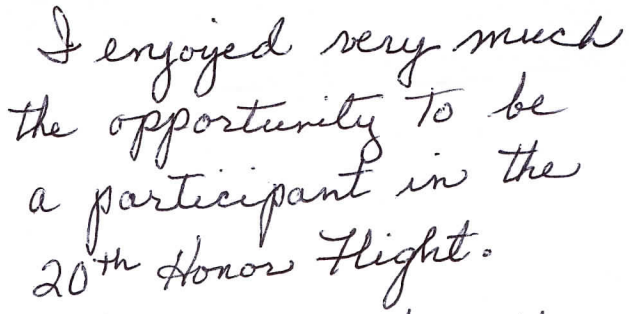 I enjoyed very much
the opportunity to be
a participant in the
20th Honor Flight.